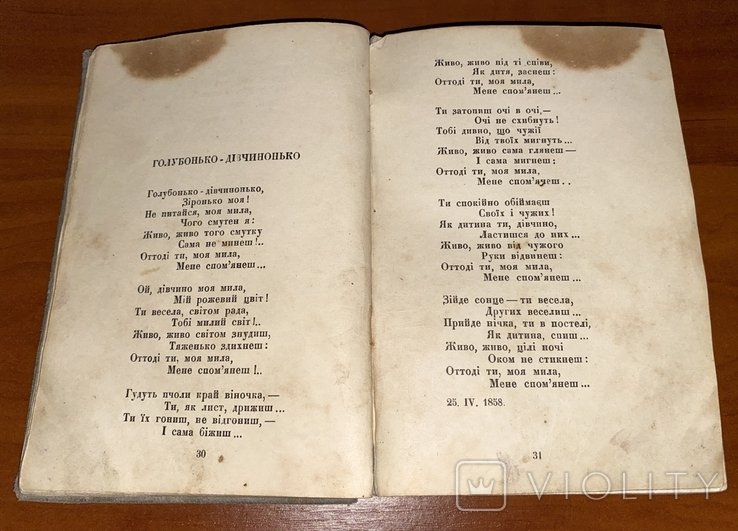 ГОЛУБОНЬКО-ДІВЧИНОНЬКО
Голубонько-дівчинонько,
Зіронько моя!
Не питайся, моя мила,
Чого смутен я:
Живо, живо того смутку
Сама не минеш!..
Оттоді ти, моя мила,
Мене спом'янеш...
Ой, дівчино моя мила,
Мій рожевий цвіт!
Ти весела, світом рада,
Тобі милий світ!..
Живо, живо світом знудиш,
Тяженько здихнеш:
Оттоді ти, моя мила,
Мене спом'янеш!..
Гудуть пчоли край віночка,—
Ти, як лист, дрижиш...
Ти їх гониш, не відгониш,—
І сама біжиш...
30
Живо, живо під ті співи,
Як дитя, заснеш:
Оттоді ти, моя мила,
Мене спом'янеш...
Ти затопиш очі в очі,—
Очі не схибнуть!
Тобі дивно, що чужії
Від твоїх мигнуть...
Живо, живо сама глянеш—
І сама мигнеш:
Оттоді ти, моя мила,
Мене спом'янеш..
Ти спокійно обіймаєш
Своїх і чужих!
Як дитина ти, дівчино,
Ластишся до них...
Живо, живо від чужого
Руки відвинеш:
Оттоді ти, моя мила,
Мене спом'янеш...
Зійде сонце—ти весела,
Других веселиш...
Прийде нічка, ти в постелі,
Як дитина, спиш...
Живо, живо, цілі ночі
Оком не стикнеш:
Оттоді ти, моя мила,
Мене спом'янеш...
25. IV. 1858.
31
VIOLITY